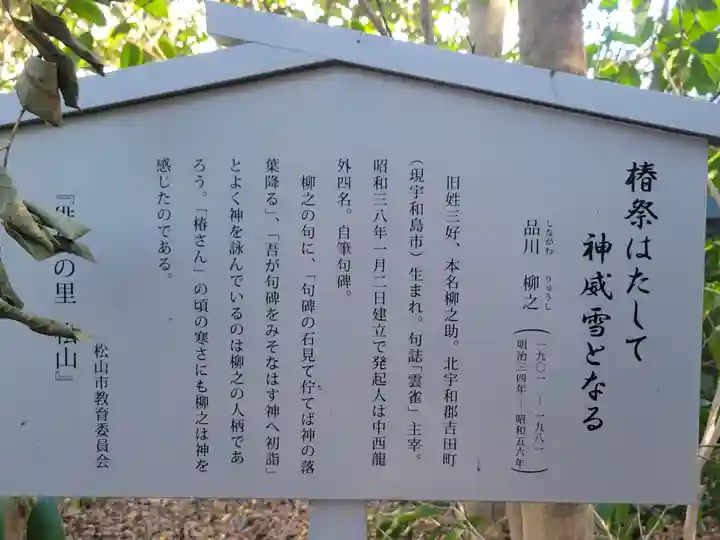 椿祭はたして
神威雪となる
しながわ りゅうし
品川 柳之
(一九〇一 ― 一九八一
明治三四年 ― 昭和五六年)
旧姓三好、本名柳之助。北宇和郡吉田町
(現宇和島市)生まれ。句誌「雲雀」主宰。
昭和三八年一月二日建立で発起人は中西龍
外四名。自筆句碑。
柳之の句に、「句碑の石見て佇てば神の落
葉降る」、「吾が句碑をみそなはす神へ初詣」
とよく神を詠んでいるのは柳之の人柄であ
ろう。「椿さん」の頃の寒さにも柳之は神を
感じたのである。
の里 松山』
松山市教育委員会